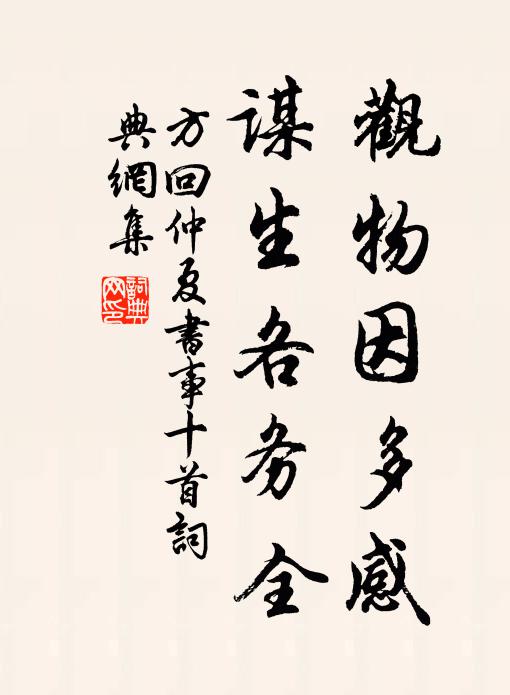 觀物因多感
謀生各务全
方回仲夏書事十首詞
典網集
詞典网印